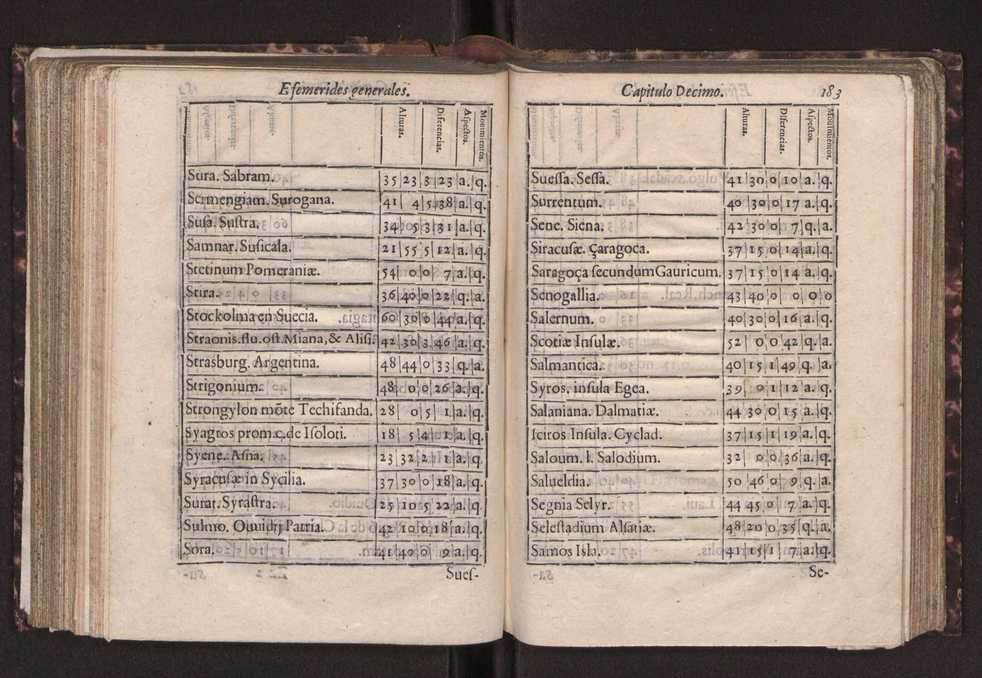 Efemerides generales.
Alturas. Diferencias. Aspectos. Mouimientos.
Sura. Sabram. 35 23 3 23 a. q.
Sermengiam. Surogana. 41 4 5 38 a. q.
Susa. Sustra. 34 5 3 31 a. q.
Samnar. Susicala. 21 55 5 12 a. q.
Stetinum Pomeraniæ. 54 0 0 7 a. q.
Stira. 36 40 0 22 q. a.
Stockolma en Suecia. 60 30 0 44 a. q.
Straonis.flu.ost.Miana,& Alisi. 42 30 3 46 a. q.
Strasburg. Argentina. 48 44 0 33 q. a.
Strigonium. 48 0 0 26 a. q.
Strongylon mõte Techifanda. 28 0 5 1 a. q.
Syagros prom.ç.de Isoloti. 18 5 4 1 a. q.
Syene. Asna. 23 32 2 1 a. q.
Syracusæ in Syçilia. 37 30 0 18 a. q.
Surat. Syrastra. 25 10 5 22 a. q.
Sulmo. Ouuidij Patria. 42 10 0 18 a. q.
Sora. 41 40 0 9 a. q.
Sues-
Capitulo Decimo. 183
Alturas. Diferencias. Aspectos. Mouimientos.
Suessa. Sessa. 41 30 0 10 a. q.
Surrentum. 40 30 0 17 a. q.
Sene. Siena. 42 30 0 7 q. a.
Siracusæ. Çaragoca. 37 15 0 14 a. q.
Saragoça secundum Gauricum. 37 15 0 14 a. q.
Senogallia. 43 40 0 0 0 0
Salernum. 40 30 0 16 a. q.
Scotiæ Insulæ. 52 0 0 42 q. a.
Salmantica. 40 15 1 49 q. a.
Syros. insula Egea. 39 0 1 12 a. q.
Salaniana. Dalmatiæ. 44 30 0 15 a. q.
Sciros Insula. Cyclad. 37 15 1 19 a. q.
Saloum. l. Salodium. 32 0 0 36 a. q.
Salueldia. 50 46 0 9 q. a.
Segnia Selyr. 44 45 0 7 a. q.
Selestadium Alsatiæ. 48 20 0 35 q. a.
Samos Isla. 41 15 1 7 a. q.
Se-